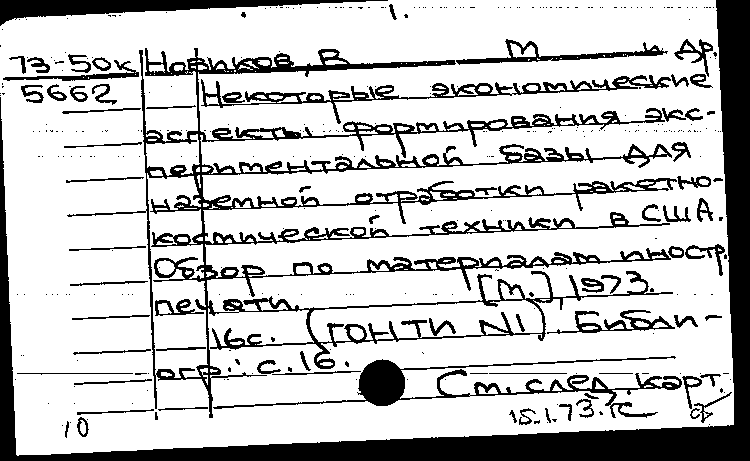 1.
73-50к Новиков, В М и др.
5662 Некоторые экономические
аспекты формирования экс-
периментальной базы для
наземной отработки ракетно-
космической техники в США.
Обзор по материалам иностр.
печати. [М.], 1973.
16с. (ГОНТИ №1). Библи-
огр.: с.16.
См. след. карт.
15.1.73.
10